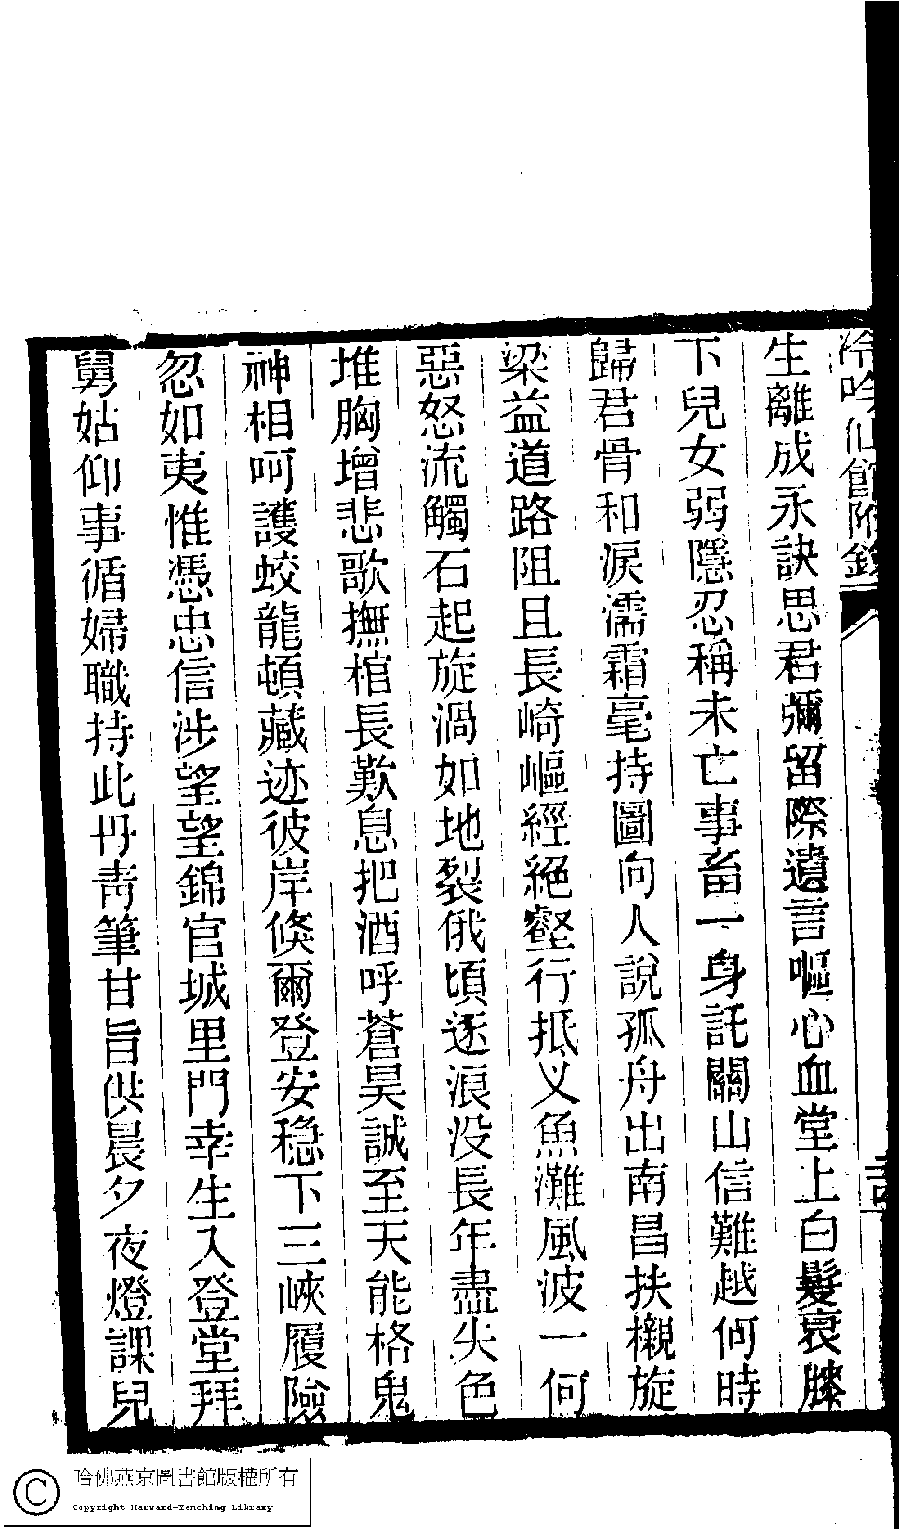 冷吟仙館附錄
生離成永訣思君彌留際遺言嘔心血堂上白髮衰膝
下兒女弱隱忍稱未亡事畜一身託關山信難越何時
歸君骨和淚濡霜毫持圖向人說孤舟出南昌扶櫬旋
梁益道路阻且長崎嶇經絕壑行抵义魚灘風波一何
惡怒流觸石起旋渦如地裂俄頃逐浪没長年盡失色
堆胸增悲歌撫棺長歎息把酒呼蒼昊誠至天能格鬼
神相呵護蛟龍頓藏迹彼岸倐爾登安穏下三峽履險
忽如夷惟憑忠信涉望望錦官城里門幸生入登堂拜
舅姑仰事循婦職持此丹青筆甘旨供晨夕夜燈課兒
哈佛燕京圖書館版權所有
Copyright Harvard-Yenching Library